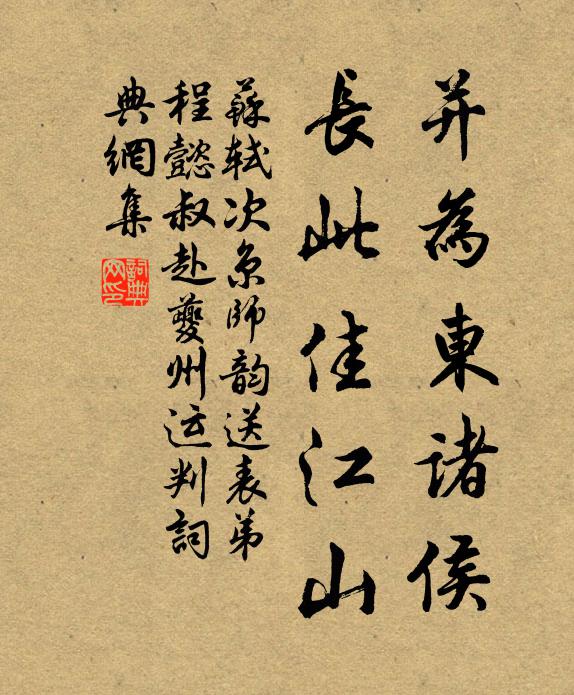 并為東諸侯
長此佳江山
蘇軾次京師韵送表弟
程懿叔赴夔州运判詞
典網集
詞典網印